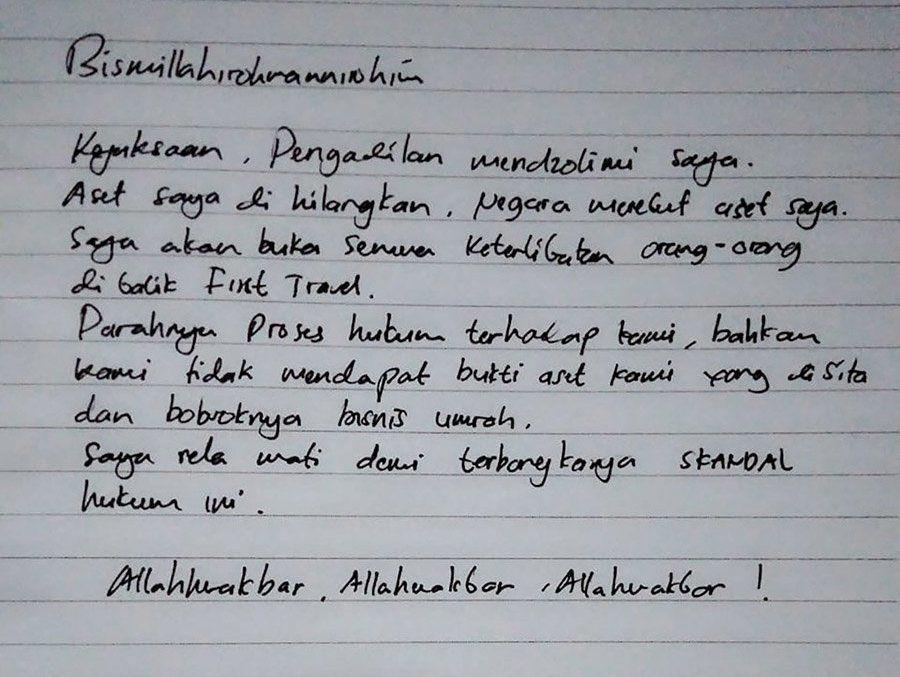 Bismillahirohmannirohim
Kejaksaan, Pengadilan mendzolimi saya.
Aset saya di hilangkan, Negara merebut aset saya.
Saya akan buka semua keterlibatan orang-orang
di balik First Travel.
Parahnya Proses hukum terhadap kami, bahkan
kami tidak mendapat bukti aset kami yang di sita
dan bobroknya bisnis umroh.
Saya rela mati demi terbongkarnya SKANDAL
hukum ini.
Allahhuakbar, Allahuakbar, Allahuakbar !